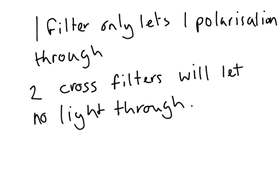 1 filter only lets 1 polarisation
through
2 cross filters will let
no light through.